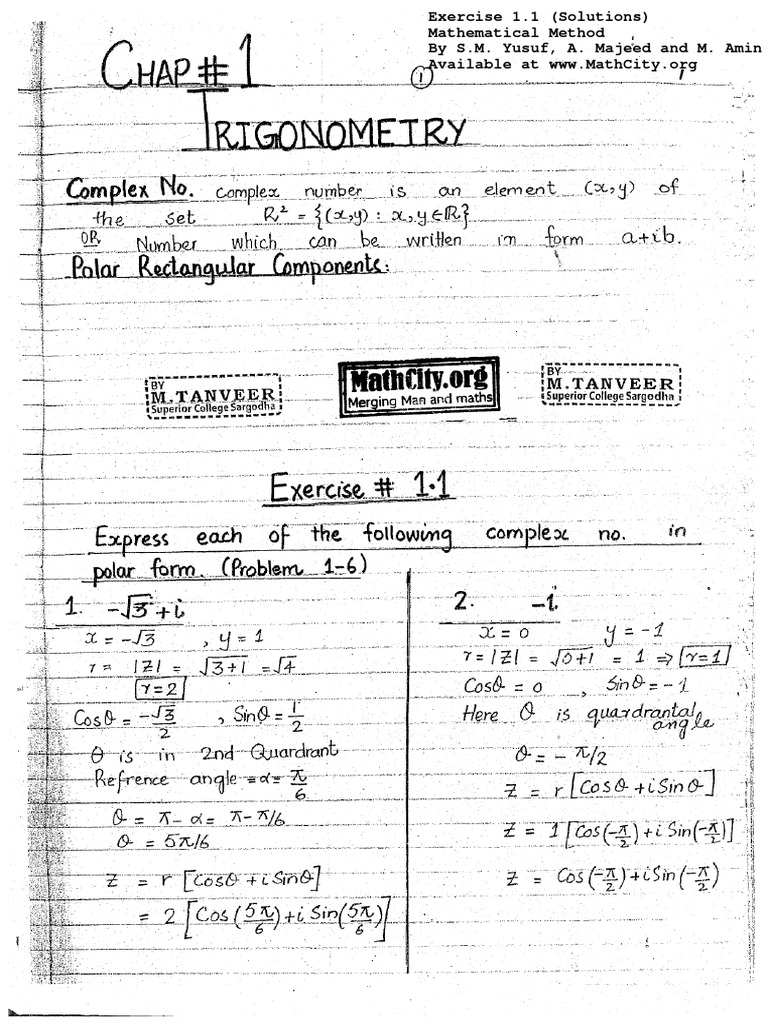 Exercise 1.1 (Solutions)
Mathematical Method
By S.M. Yusuf, A. Majeed and M. Amin
Available at www.MathCity.org
1
CHAP # 1
TRIGONOMETRY
Complex No. Complex number is an element (x,y) of
the set R² = {(x,y) : x,y∈R}
OR Number which can be written in form a+ib.
Polar Rectangular Components:
BY
M.TANVEER
Superior College Sargodha
MathCity.org
Merging Man and maths
BY
M.TANVEER
Superior College Sargodha
Exercise # 1.1
Express each of the following complex no. in
polar form. (Problem 1-6)
1. -√3+i
x = -√3 , y = 1
r = |Z| = √3+1 = √4
r=2
Cosθ = -√3/2 , Sinθ = 1/2
θ is in 2nd Quardrant
Refrence angle = α = π/6
θ = π-α = π-π/6
θ = 5π/6
Z = r [Cosθ + i Sinθ]
= 2 [Cos(5π/6) + i Sin(5π/6)]
2. -i
x = 0 y = -1
r = |Z| = √0+1 = 1 ⇒ r=1
Cosθ = 0 , Sinθ = -1
Here θ is quardrantal
angle
θ = - π/2
Z = r [Cosθ + i Sinθ]
Z = 1 [Cos(-π/2) + i Sin(-π/2)]
Z = Cos(-π/2) + i Sin(-π/2)